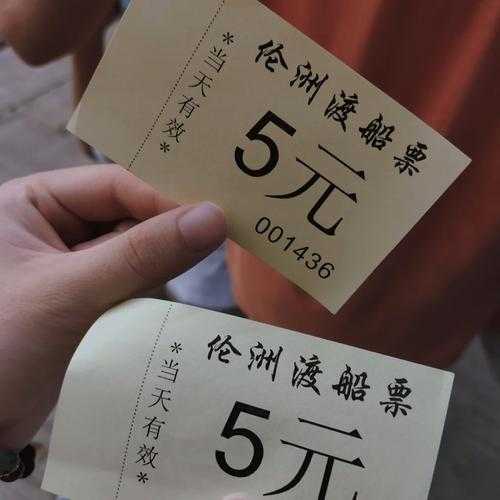 伦洲渡船票
*当天有效*
5元
001436
伦洲渡船票
*当天有效*
5元